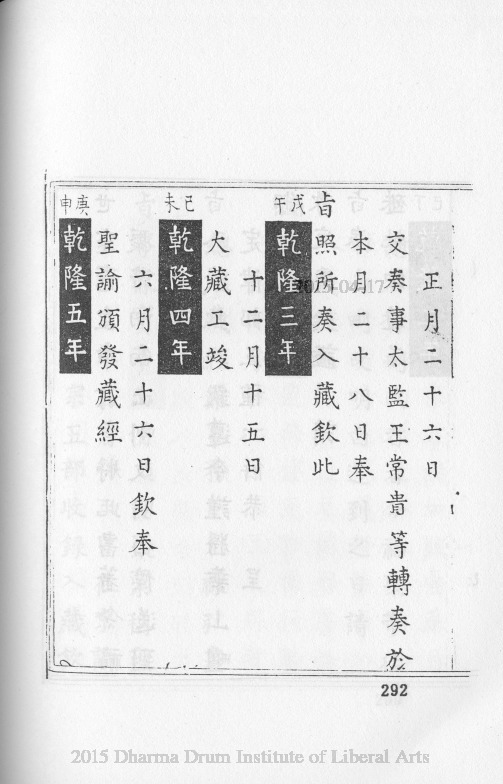 正月二十六日
交奏事太監王常貴等轉奏於
本月二十八日奉
旨照所奏入藏欽此
戊午
乾隆三年
十二月十五日
大藏工竣
己未
乾隆四年
六月二十六日欽奉
聖諭頒發藏經
庚申
乾隆五年
292
2015 Dharma Drum Institute of Liberal Arts